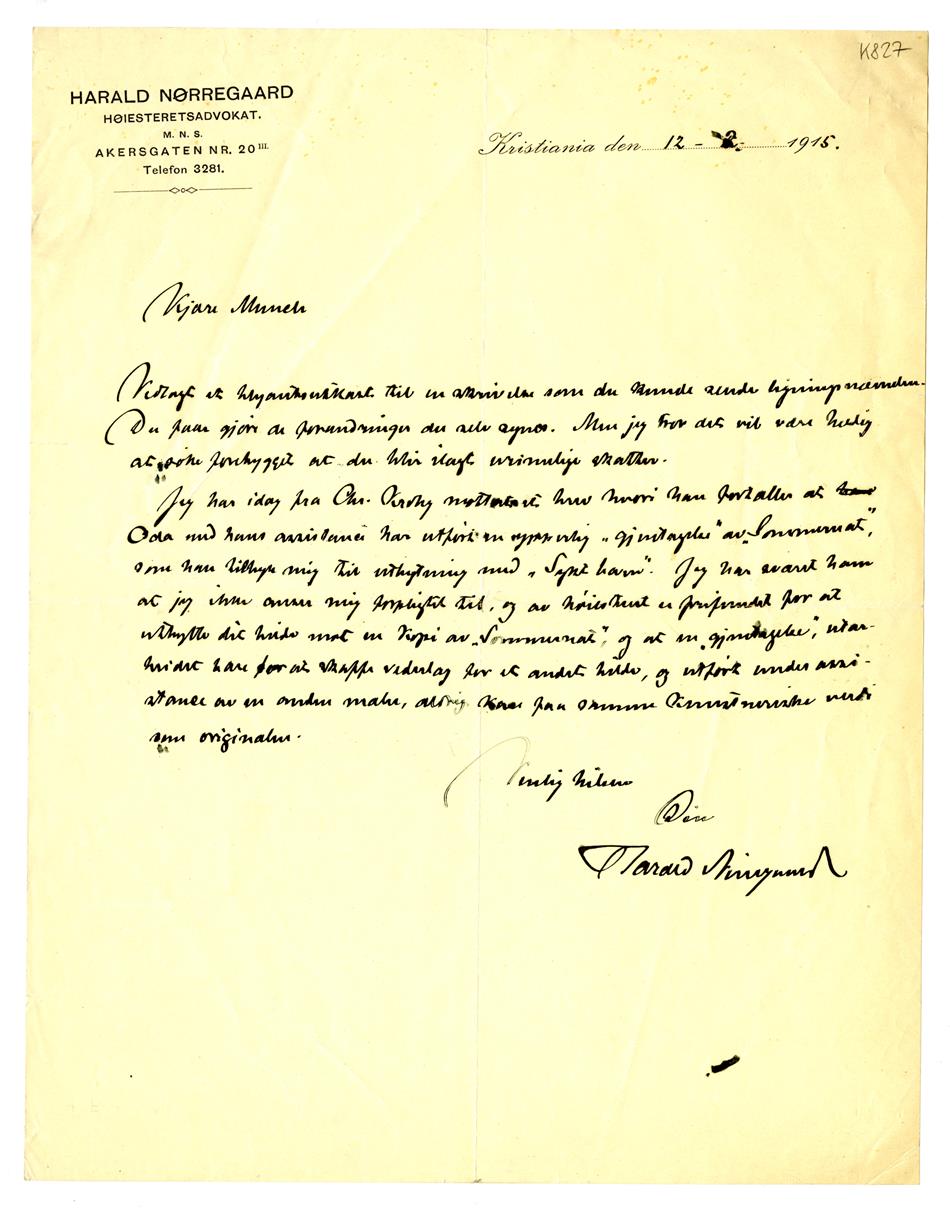 K827
HARALD NØRREGAARD
HØIESTERETSADVOKAT.
M. N. S.
AKERSGATEN NR. 20 III.
Telefon 3281.
Kristiania den 12 - 2. 1915.
Kjære Munch
Vedlagt et blyantsutkast til en skrivelse som du kunde sende ligningsnævnden.
Du faar gjøre de forandringer du selv synes. Men jeg tror det vil være heldig
at søke forebygget at du blir ilagt urimelige skatter.
Jeg har idag fra Chr. Krohg mottat et brev hvori han fortæller at
Oda med hans assistance har utført en "gjentagelse" av "Sommernat",
som han tilbyr mig til utbytning med "Sykt barn". Jeg har svaret ham
at jeg ikke anser mig forpligtet til, og av høiesteret er frifundet for at
utbytte dit billede mot en kopi av "Sommernat", og at en "gjentagelse", utar-
beidet bare for at skaffe vederlag for et andet billede, og utført under assi-
stance av en anden maler, aldrig kan faa samme kunstneriske verdi
som originalen.
Venlig hilsen
Din
Harald Nørregaard